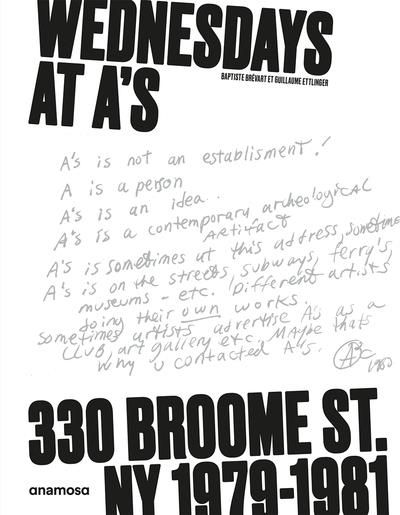 WEDNESDAYS
AT A'S
BAPTISTE BRÉVART ET GUILLAUME ETTLINGER
A's is not an establisment!
A is a person
A's is an idea.
A's is a contemporary archeological
Artifact
A's is sometimes at this address, sometime
A's is on the streets, subways, ferry's,
museums - etc. Different artists
doing their own works.
Sometimes artists advertise A's as a
CLUB, art gallery etc. MAybe thats
why u contacted A's.
1980
330 BROOME ST.
anamosa
NY 1979-1981